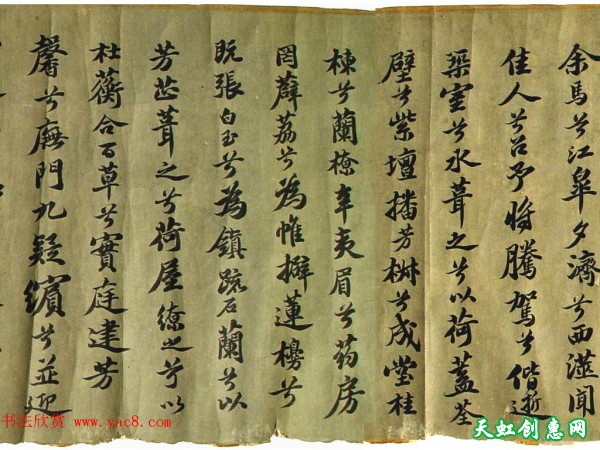 余馬兮江皋夕濟兮西澨聞
佳人兮召予将騰駕兮偕逝
築室兮水葺之兮以荷蓋荃
壁兮紫壇播芳椒兮成堂桂
棟兮蘭橑辛夷眉兮葯房
罔薜荔兮為帷擗蓮櫋兮
既張白玉兮為鎮疏石蘭兮以
芳芷葺之兮荷屋繚之兮以
杜蘅合百草兮實庭建芳
馨兮廡門九疑繽兮並迎
书法欣赏 www.yac8.com
天虹创惠网